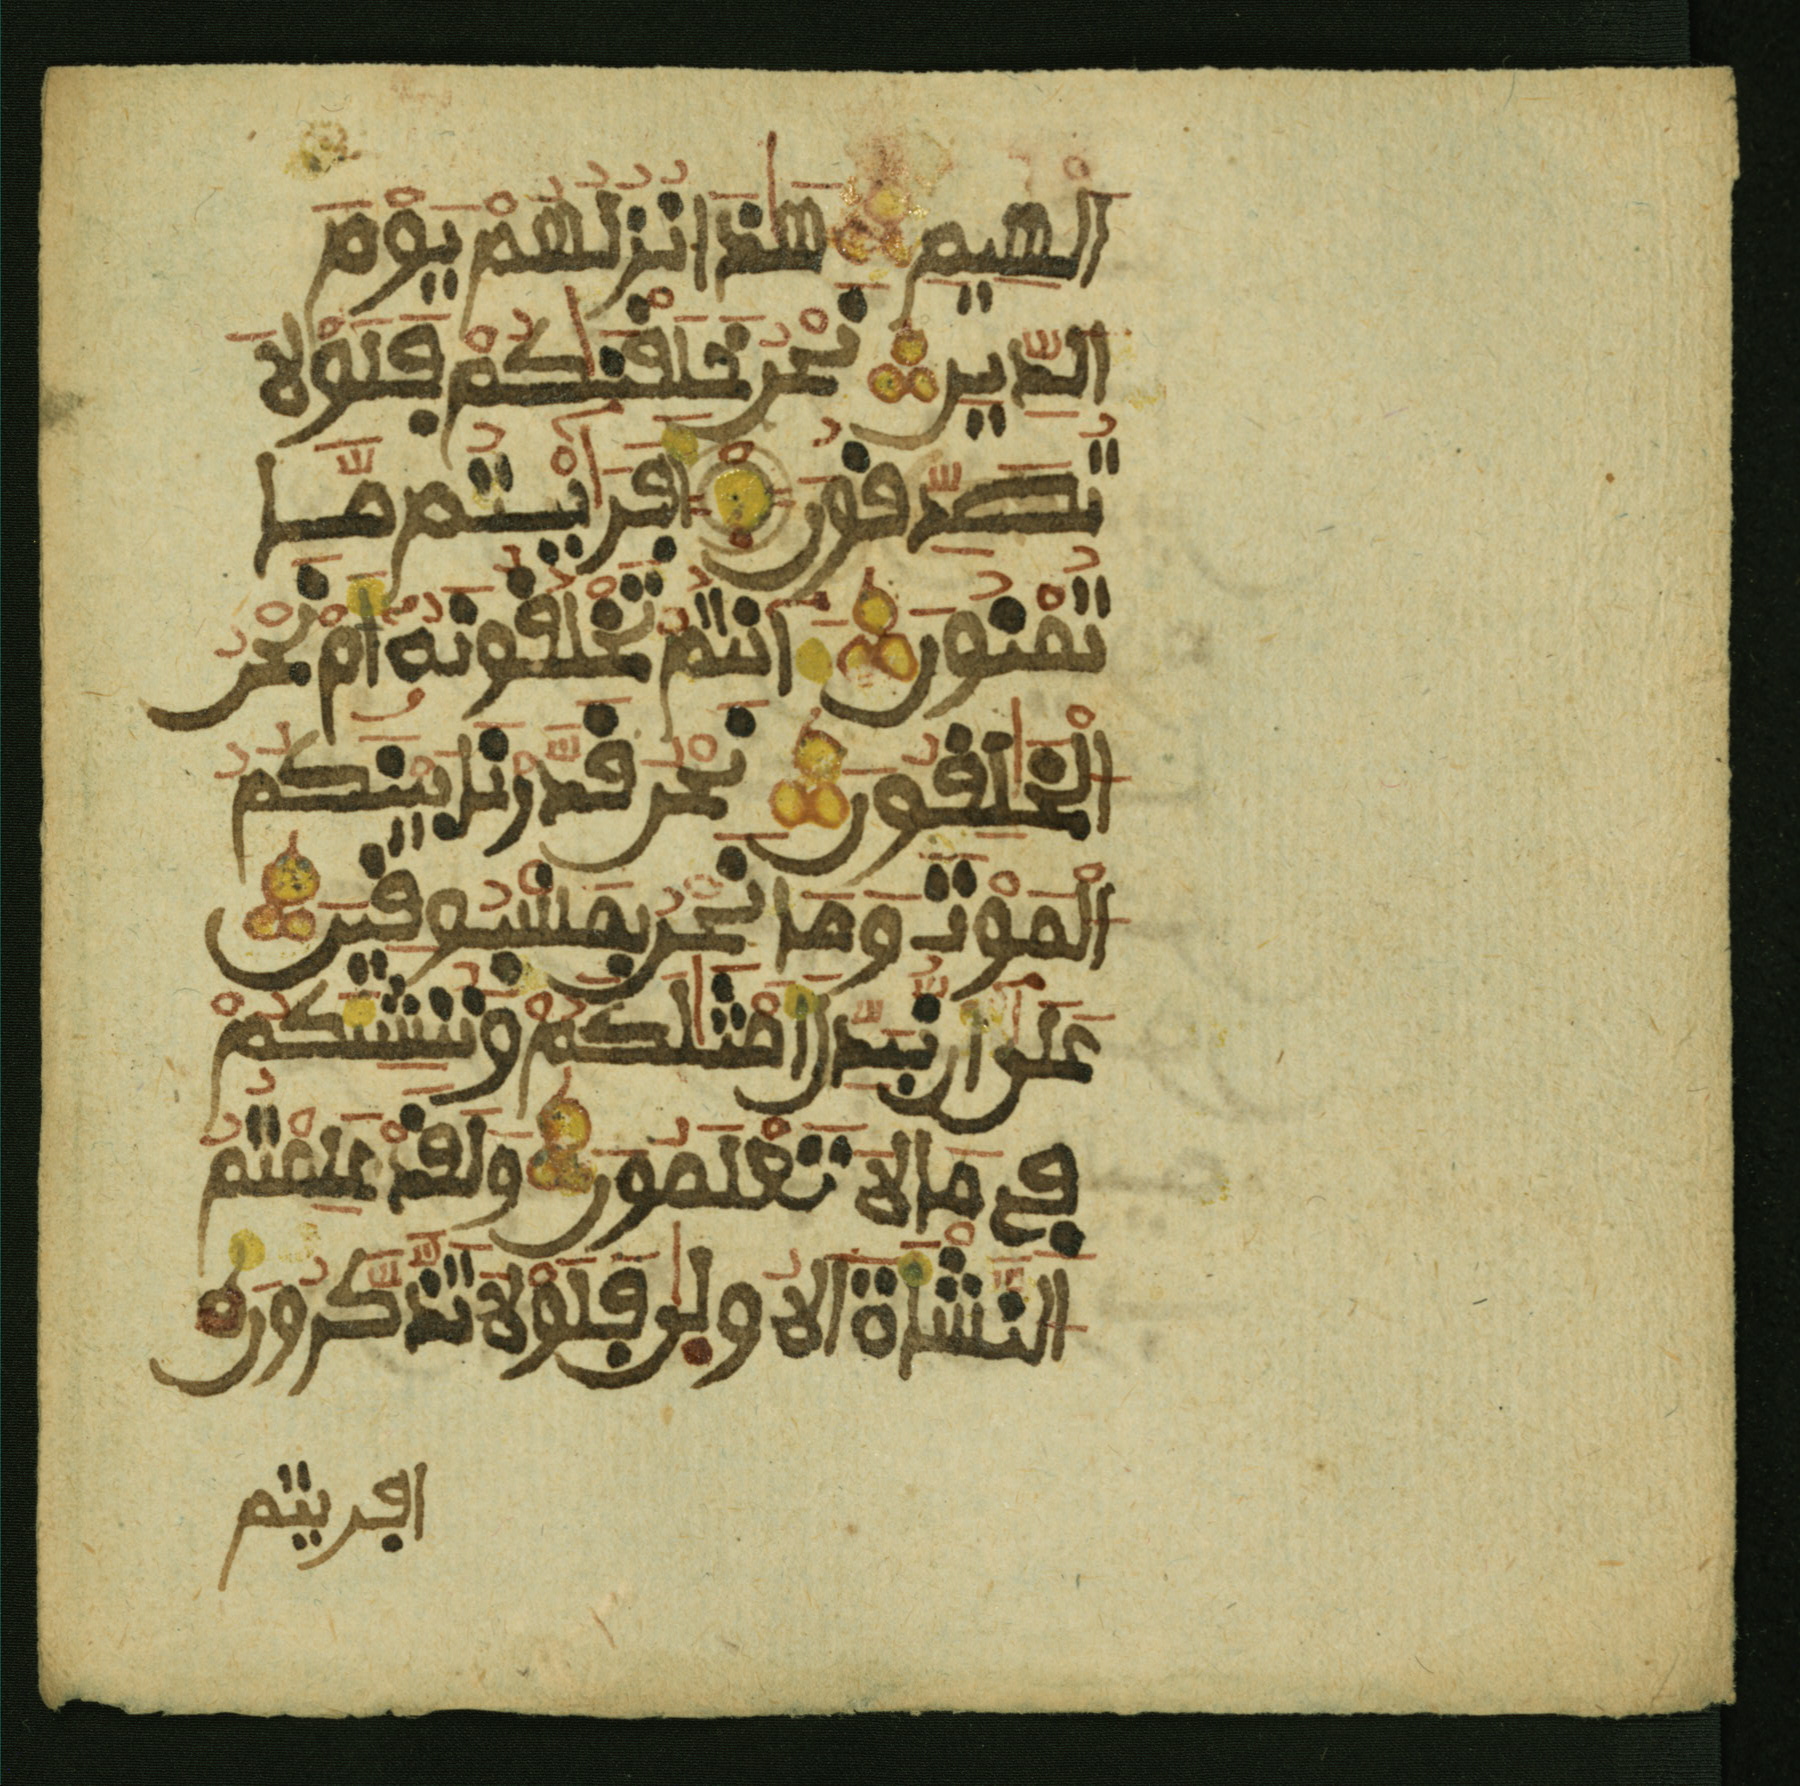 الْهِيمِ هَٰذَا نُزُلُهُمْ يَوْمَ
الدِّينِ نَحْنُ خَلَقْنَٰكُمْ فَلَوْلَا
تُصَدِّقُونَ أَفَرَٰٓيْتُم مَّا
تُمْنُونَ ءَآنتُمْ تَخْلُقُونَهُۥٓ أَمْ نَحْنُ
الْخَٰلِقُونَ نَحْنُ قَدَّرْنَا بَيْنَكُمُ
الْمَوْتَ وَمَا نَحْنُ بِمَسْبُوقِينَ
عَلَىٰٓ أَن نُّبَدِّلَ أَمْثَٰلَكُمْ وَنُنشِئَكُمْ
فِے مَا لَا تَعْلَمُونَ وَلَقَدْ عَلِمْتُمُ
النَّشْأَةَ الْأُولَىٰ فَلَوْلَا تَذَّكَّرُونَ
افريتم